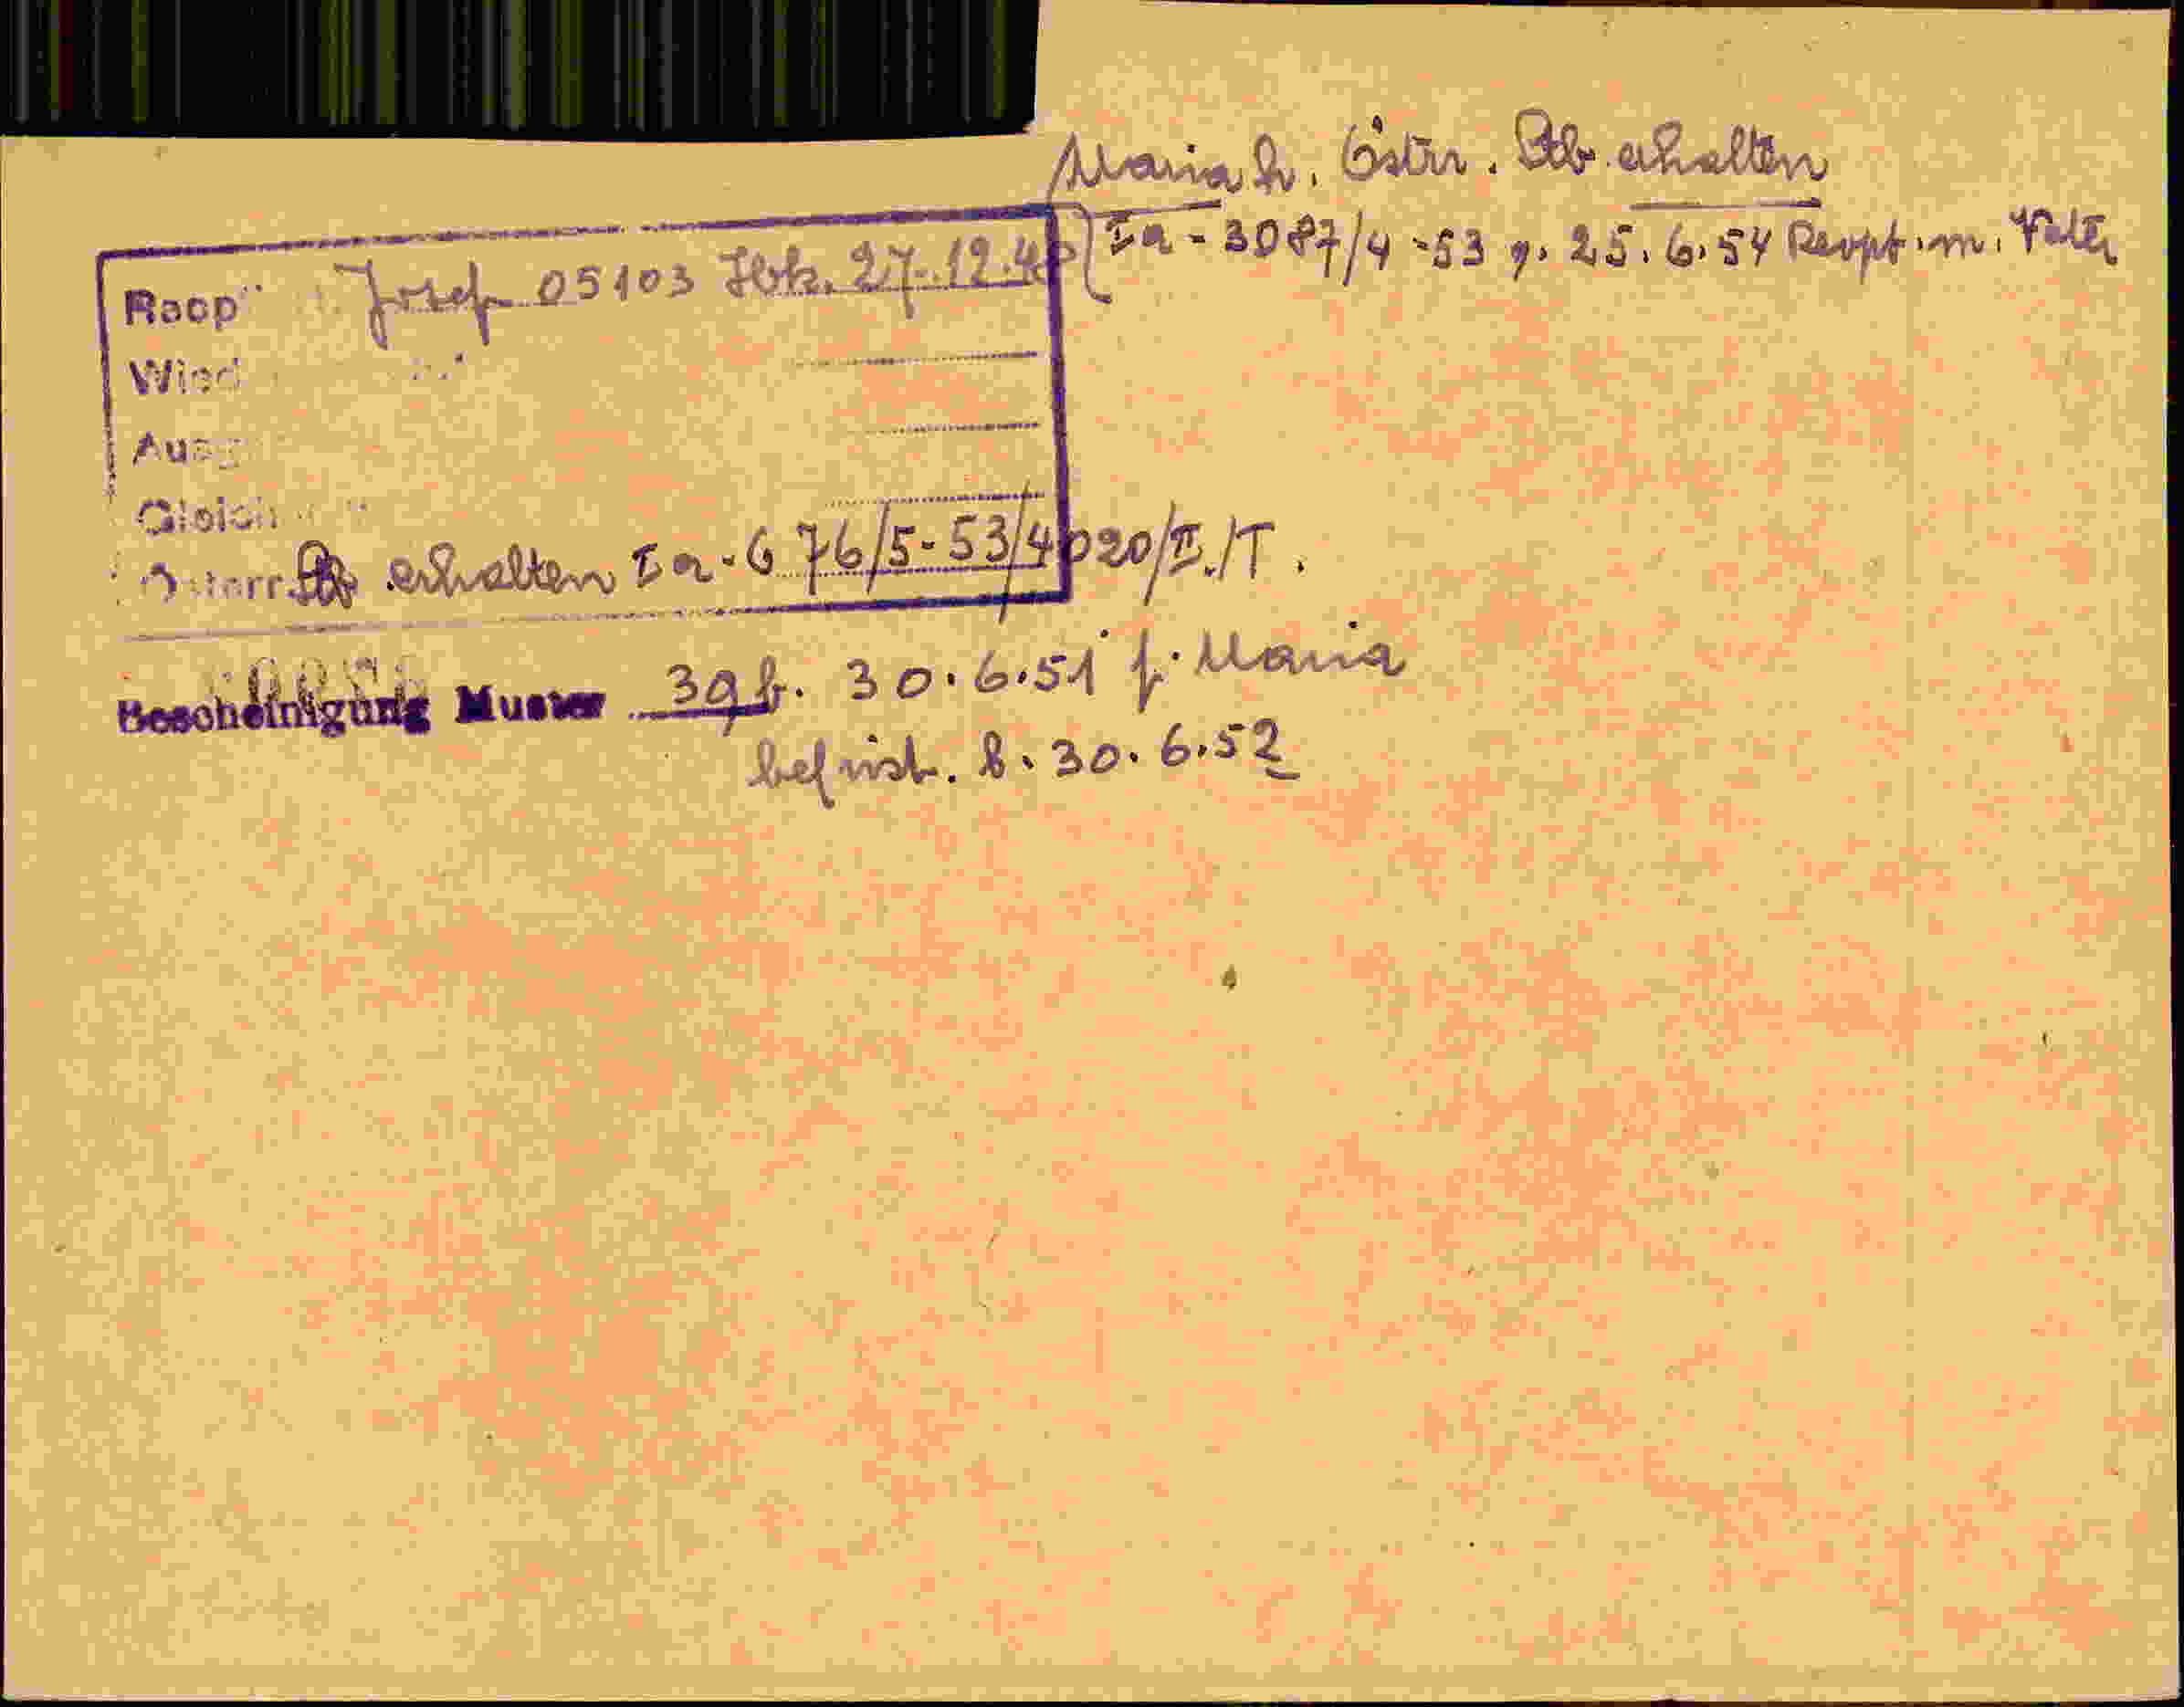 Maria h. Östr. Stb. erhalten
Ia - 3087/4-53 v. 25.6.54 Reopt. m. Vater
Reop Josef 05103 Ibk. 27.12.
Wied
Ausg
Gleich
Österr. Stb erhalten Ia-676/5-53/4020/II./T.
Bescheinigung Muster 39 b. 30.6.51 f. Maria
befrist. b. 30.6.52